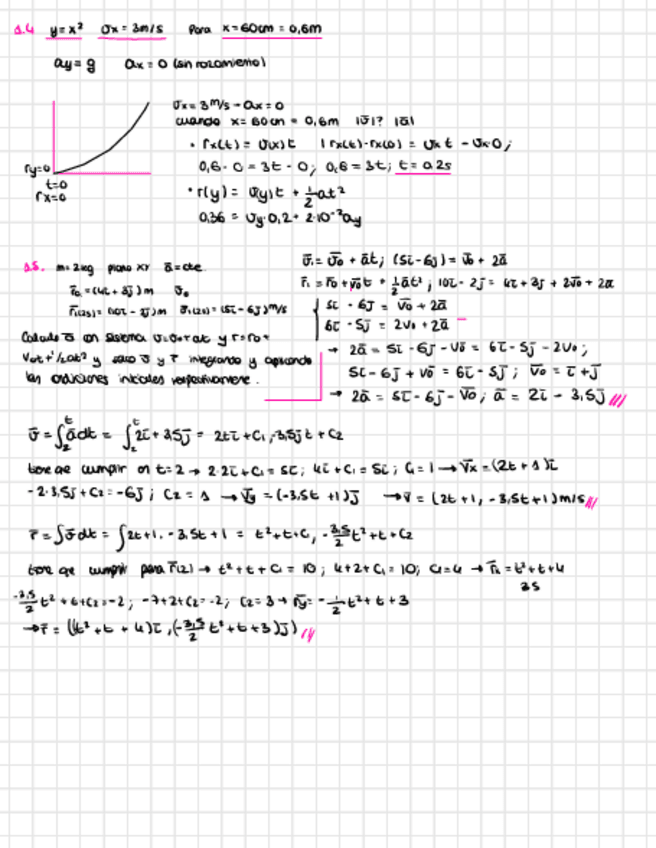 1.4 y = x² vx = 3m/s Para x = 60cm = 0,6m
ay = g ax = 0 (sin rozamiento)
vx = 3 m/s → ax = 0
cuando x = 60cm = 0,6m |v|? |a|
• rx(t) = v(x)t | rx(t) - rx(0) = vx t - vx·0;
0,6 - 0 = 3t - 0; 0,6 = 3t; t = 0.2s
ry=0
t=0
rx=0
• r(y) = v(y)t + 1/2 at²
0,36 = vy·0,2 + 2·10⁻² ay
1.5. m = 2kg plano XY a = cte.
r0 = (4i + 3j) m v0
r1(2s) = (10i - 2j) m v1(2s) = (5i - 6j) m/s
Calcula a con sistema v = v0 + at y r = r0 +
v0t + 1/2at² y saco v y r integrando y aplicando
las condiciones iniciales respectivamente.
v1 = v0 + at; (5i - 6j) = v0 + 2a
r1 = r0 + v0t + 1/2 at²; 10i - 2j = 4i + 3j + 2v0 + 2a
5i - 6j = v0 + 2a
6i - 5j = 2v0 + 2a
→ 2a = 5i - 6j - v0 = 6i - 5j - 2v0;
5i - 6j + v0 = 6i - 5j; v0 = i + j
→ 2a = 5i - 6j - v0; a = 2i - 3,5j
v = ∫₂ᵗ a dt = ∫₂ᵗ 2i + 3,5j = 2ti + C1, -3,5j t + C2
tiene que cumplir en t=2 → 2·2i + C1 = 5i; 4i + C1 = 5i; C1 = 1 → vx = (2t + 1)i
-2·3,5j + C2 = -6j; C2 = 1 → vy = (-3,5t + 1)j → v = (2t + 1, -3,5t + 1) m/s
r = ∫v dt = ∫2t+1, -3.5t + 1 = t² + t + C1, -3,5/2 t² + t + C2
tiene que cumplir para r(2) → t² + t + C1 = 10; 4+2+C1 = 10; C1 = 4 → rx = t² + t + 4
3.5
-3,5/2 t² + t + C2 = -2; -7+2+C2 = -2; C2 = 3 → ry = -1/2 t² + t + 3
→ r = ((t² + t + 4)i, (-3,5/2 t² + t + 3)j)